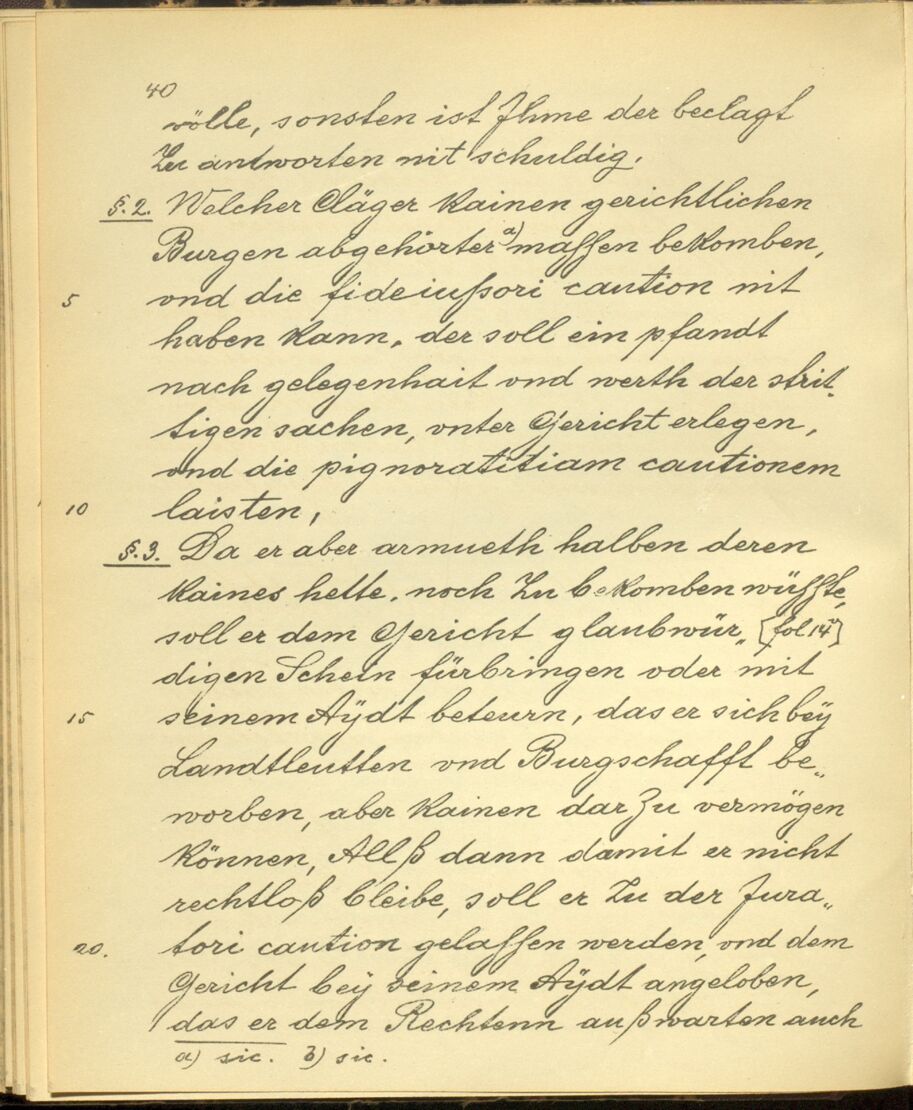 40
wölle, sonsten ist Ihme der beclagt
Zu antworten nit schuldig.
§. 2. Welcher Cläger Kainen gerichtlichen
Burgen abgehörter a) massen bekomben,
vnd die fideiussori caution nit
5
haben Kann, der soll ein pfandt
nach gelegenhait vnd werth der strit„
tigen sachen, vnter Gericht erlegen,
vnd die pignoratitiam cautionem
10
laisten,
§. 3. Da er aber armueth halben deren
Kaines hette, noch Zu bekomben wüsste,
soll er dem Gericht glaubwür„ [fol 14v]
digen Schein fürbringen oder mit
15
seinem Aÿdt beteurn, das er sich beÿ
Landtleutten vnd Burgschafft be„
worben, aber Kainen darZu vermögen
Können, Allß dann damit er nicht
rechtloß bleibe, soll er Zu der Jura„
20.
tori caution gelassen werden, vnd dem
Gericht beÿ seinem Aÿdt angeloben,
das er dem Rechtenn außwarten auch
a) sic. b) sic.